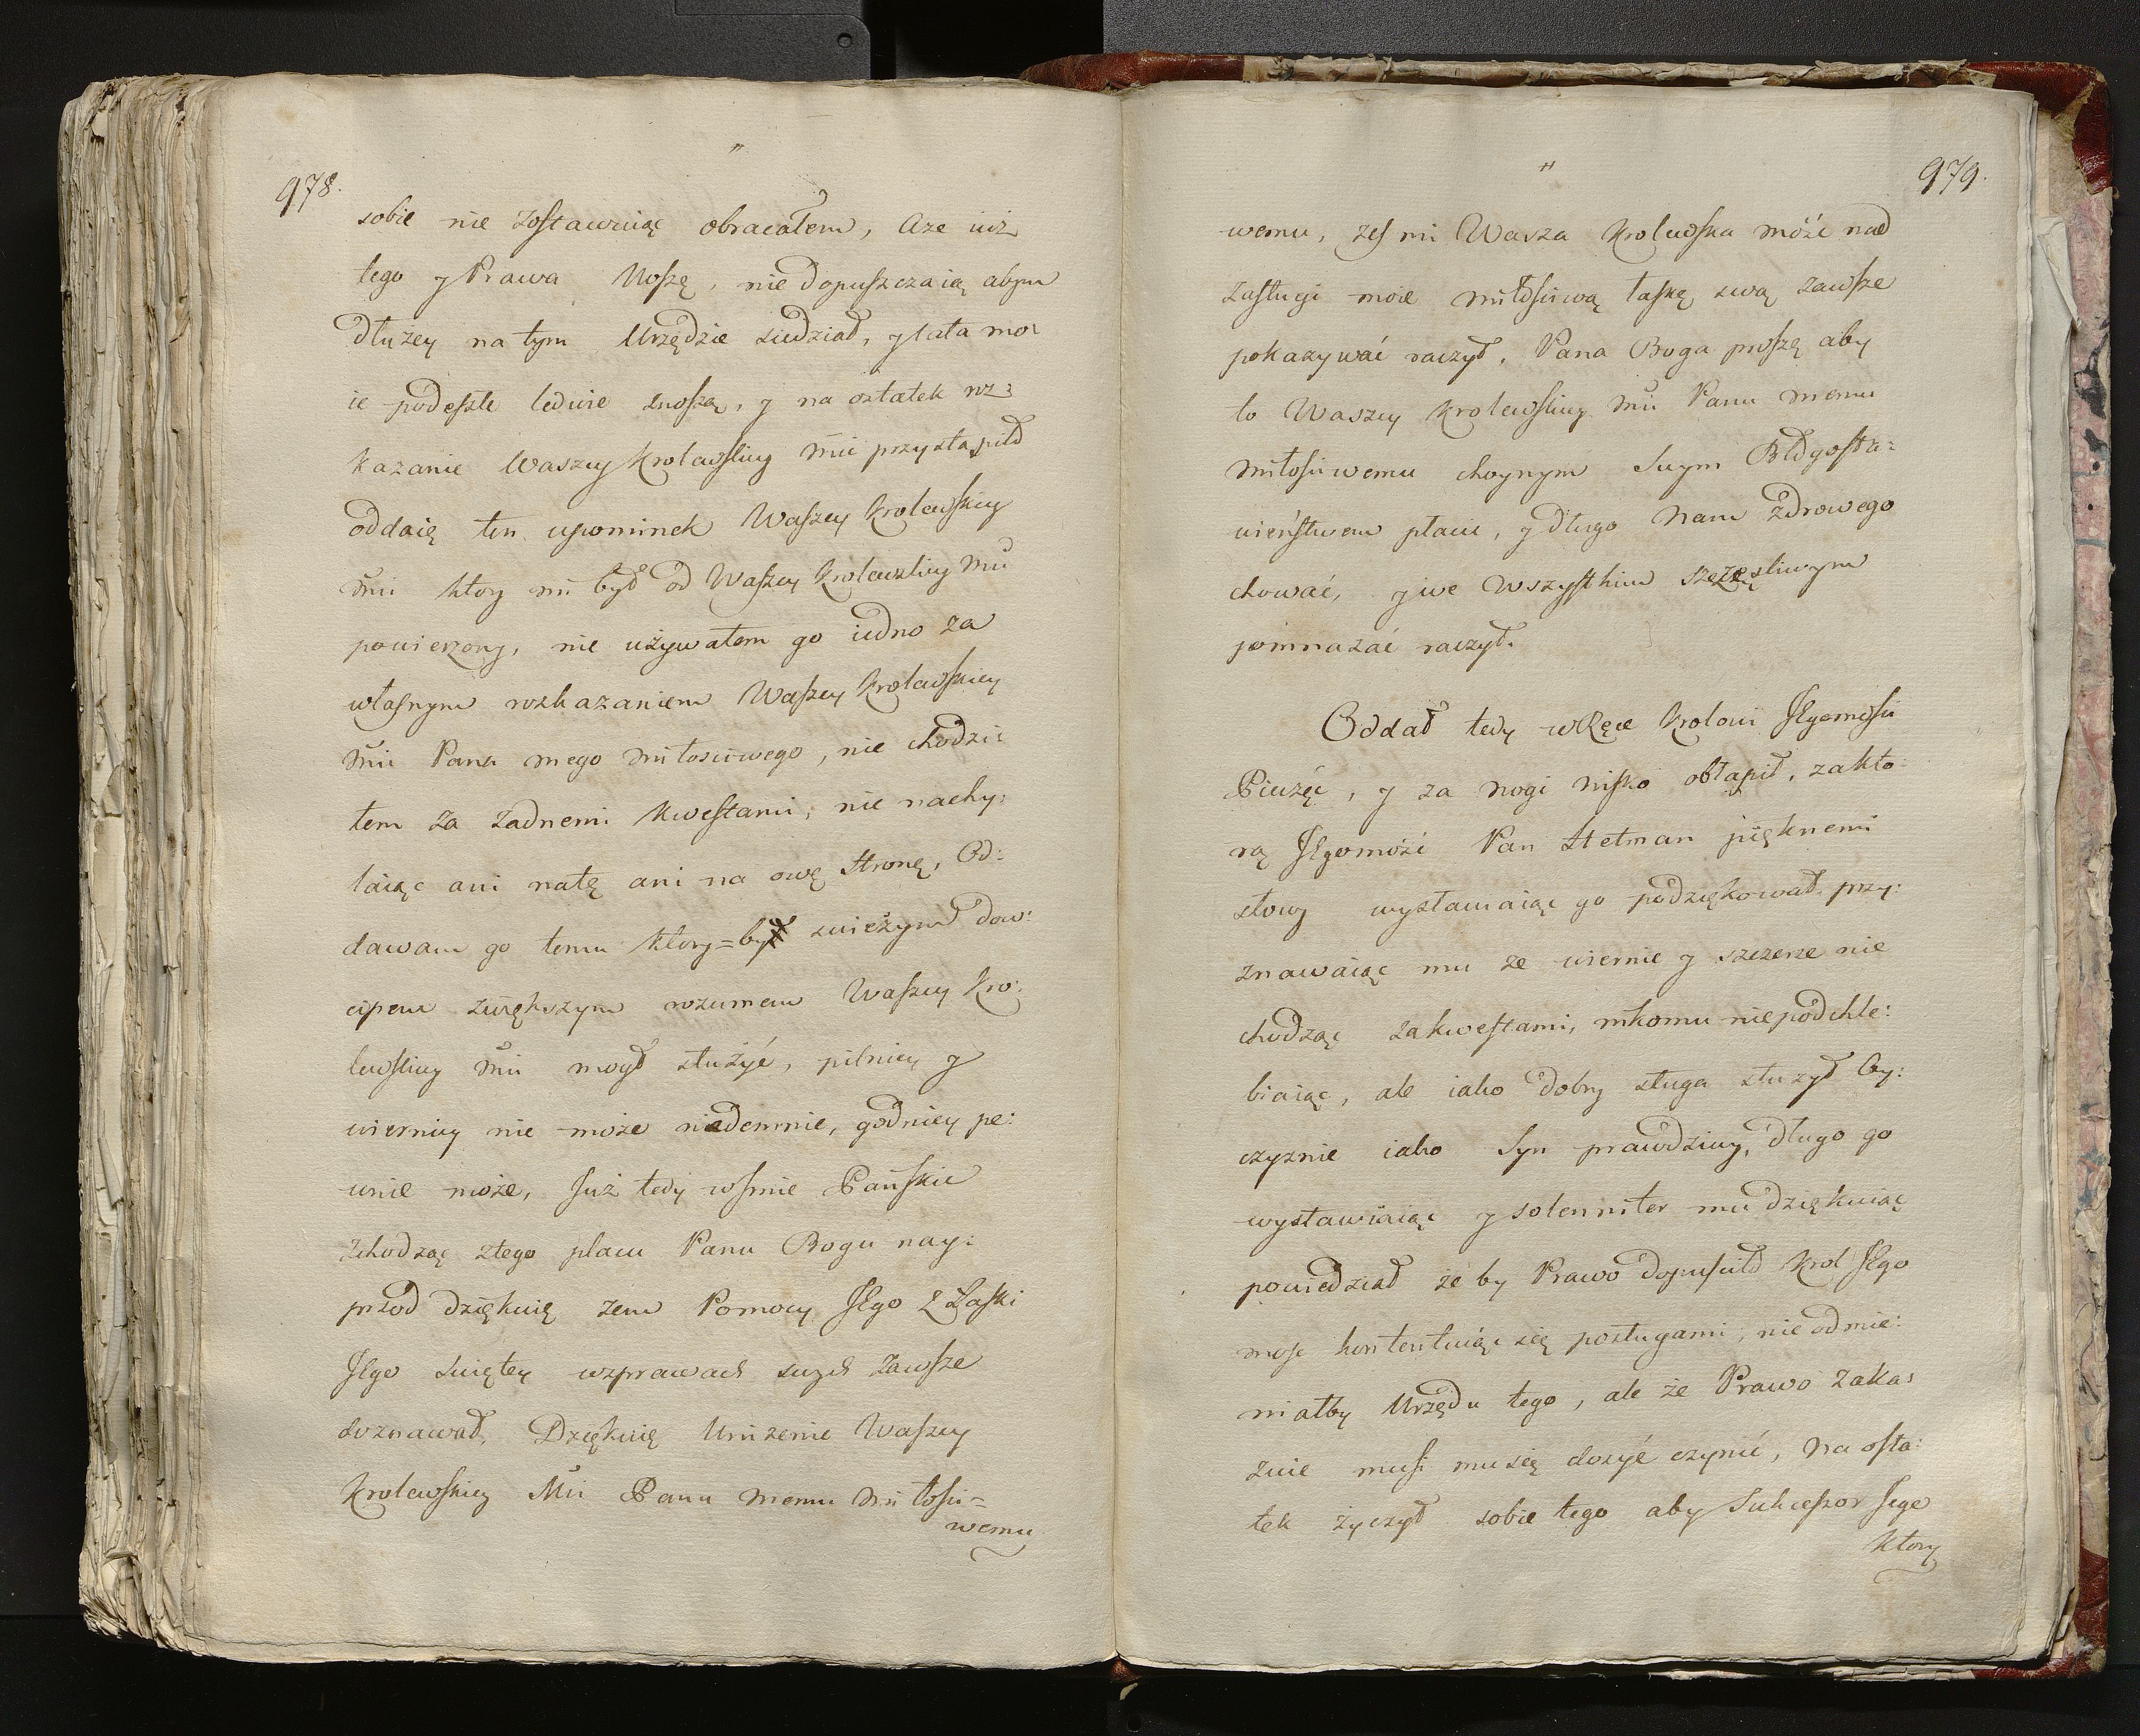 978.
sobie nie zostawuiąc obracałem, Aze iuż
tego y Prawa Noszę, niedopuszczaią abym
dłużey na tym Urzędzie siedział, y lata mo:
ie podeszłe ledwie znoszą, y na ostatek roz:
kazanie Waszey Krolewskiey Mci przystąpiło
oddaię ten upominek Waszey Krolewskiey
Mci ktory mi był od Waszey Krolewskiey Mci
powierzony, nie używałem go iedno za
własnym rozkazaniem Waszey Krolewskiey
Mci Pana mego Miłosciwego, nie chodzi:
łem za żadnemi Kwestami, nie nachy:
laiąc ani natę ani na owę stronę, Od:
dawam go temu ktory=by swieżym dow:
cipem zwiększym rozumem Waszey Kro:
lewskiey Mci mogł służyć, pilniey y
wierniey nie może nademnie, godniey pe:
wnie może, Już tedy wImie Pańskie
Zchodząc ztego placu Panu Bogu nay:
przod dziękuię żem Pomocy Jego z Łaski
Jego Swiętey wsprawach swych Zawsze
doznawał, Dziękuię Unizenie Waszey
Krolewskiey Mci Panu memu Miłosci=
wemu
979.
wemu, żeś mi Wasza Krolewska Mość nad
zasługi moie miłosciwą łaskę swą zawsze
pokazywać raczył, Pana Boga proszę aby
to Waszey Krolewskiey Mci Panu memu
Miłosciwemu choynym Swym Błogosła:
wieństwem płacił, y długo Nam zdrowego
chował, y we wszystkim szczęsliwym
pomnażać raczył.
Oddał tedy wRęce Krolowi Jegomości
Pieczęć, y za nogi nisko obłapił, zakto:
rą Jegomość Pan Hetman pięknemi
słowy wysławiaiąc go podziękował przy:
znawaiąc mu że wiernie y szczerze nie
chodząc zakwestami, nikomu niepodchle:
biaiąc, ale iako dobry sługa służył Oy:
czyznie iako Syn prawdziwy, długo go
wysławiaiąc y solenniter mu dziękuiąc
powiedział że by Prawo dopusciło Krol Jego
mość kontentuiąc się posługami, nie odmie:
niałby Urzędu tego, ale że Prawo Zaka:
zuie musi mu się dosyć czynić, Na osta:
tek życzył sobie tego aby Sukcessor Jego
ktory